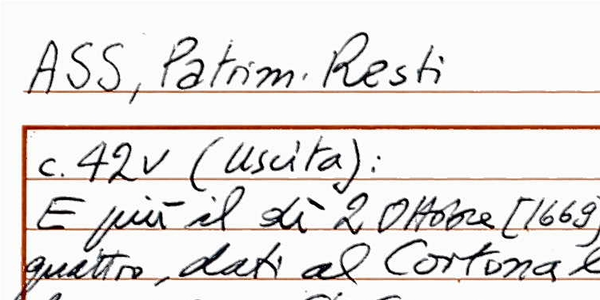 ASS, Patrim. Resti
c. 42v (Uscita):
E più il dì 2 Ottobre [1669]
quattro, dati al Cortona